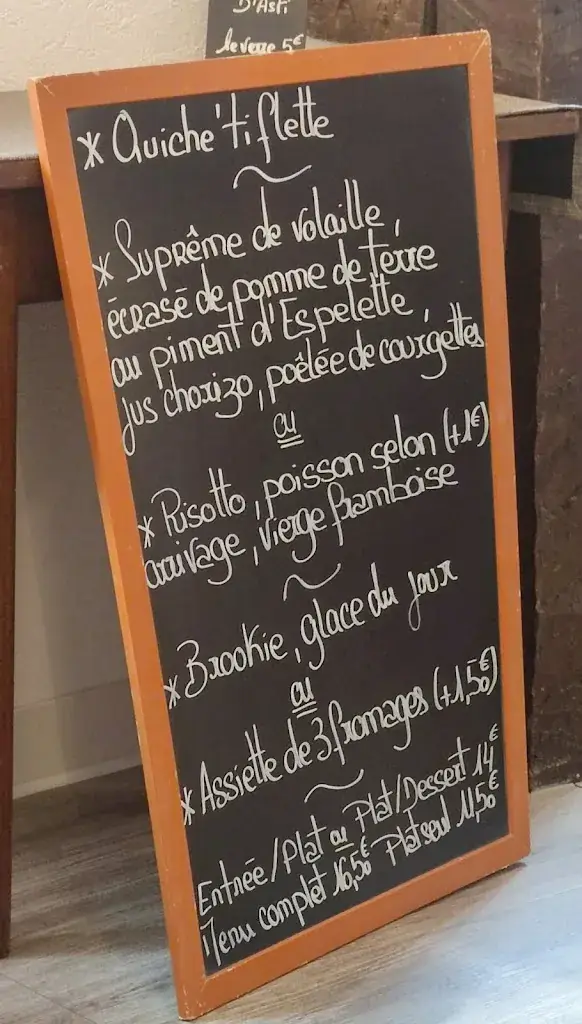 D'Asti
le verre 5€
* Quiche'tiflette
* Suprême de volaille,
écrasé de pomme de terre
au piment d'Espelette,
jus chorizo, poêlée de courgettes
ou
* Risotto, poisson selon (+1€)
arrivage, vierge framboise
* Brookie, glace du jour
ou
* Assiette de 3 fromages (+1,50€)
Entrée/Plat ou Plat/Dessert 14€
Menu complet 16,50€ Plat seul 11,50€